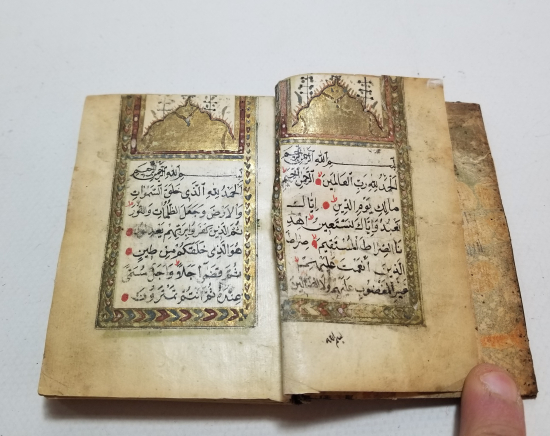 بسم الله الرحمن الرحيم
الحمد لله رب العالمين الرحمن الرحيم
مالك يوم الدين اياك
نعبد واياك نستعين اهد
نا الصراط المستقيم صراط
الذين انعمت عليهم
غير المغضوب عليهم ولا الضالين
بسم الله
بسم الله الرحمن الرحيم
الحمد لله الذي خلق السموات
والارض وجعل الظلمات والنور
ثم الذين كفروا بربهم يعدلون
هو الذي خلقكم من طين
ثم قضى اجلا واجل مسمى
عنده ثم انتم تمترون